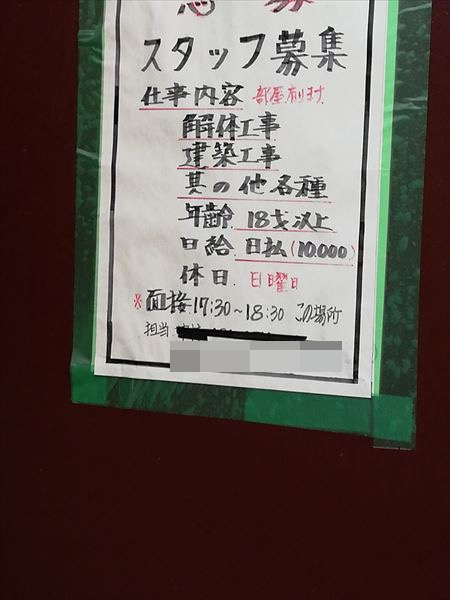 急募
スタッフ募集
仕事内容 部屋有ります
解体工事
建築工事
其の他各種
年齢 18才以上
日給 日払(10.000)
休日 日曜日
※面接17:30～18:30 この場所
担当